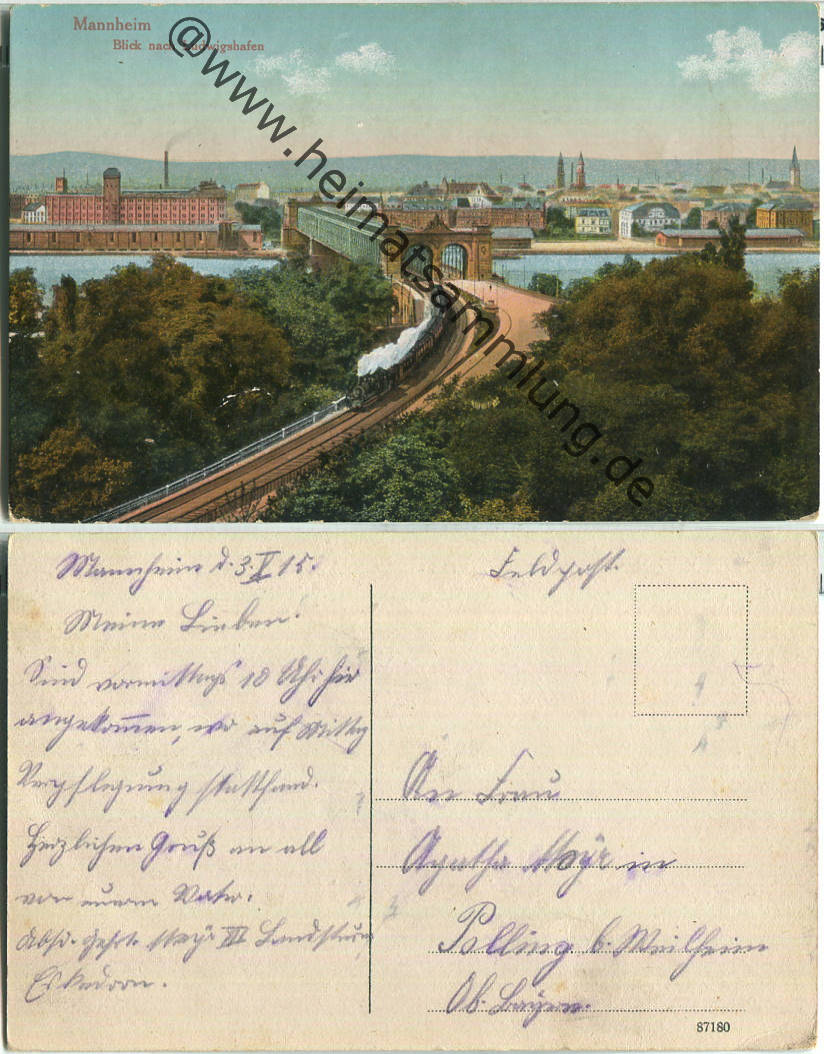 Mannheim
Blick nach Ludwigshafen
@www.heimatsammlung.de
Mannheim d. 3. V 15.
Feldpost.
Meine Lieben!
Sind vormittags 10 Uhr hier
angekommen, wo auf Mittag
Verpflegung stattfand.
Herzlichen Gruß an all
von eurem Vater.
Absd. Gefrt. Mayr III Landsturm
Eskadron.
An Frau
Agatha Mayr in
Polling b. Weilheim
Ob. Bayern.
87180